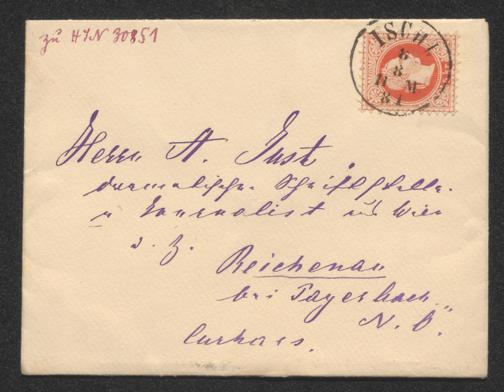 zu HIN 30851
ISCHL
6
8
11 M
81
Herrn A. Just
dramatischer Schriftsteller
u Journalist aus Wien
d. Z.
Reichenau
bei Payerbach
N. Ö.
Curhaus.